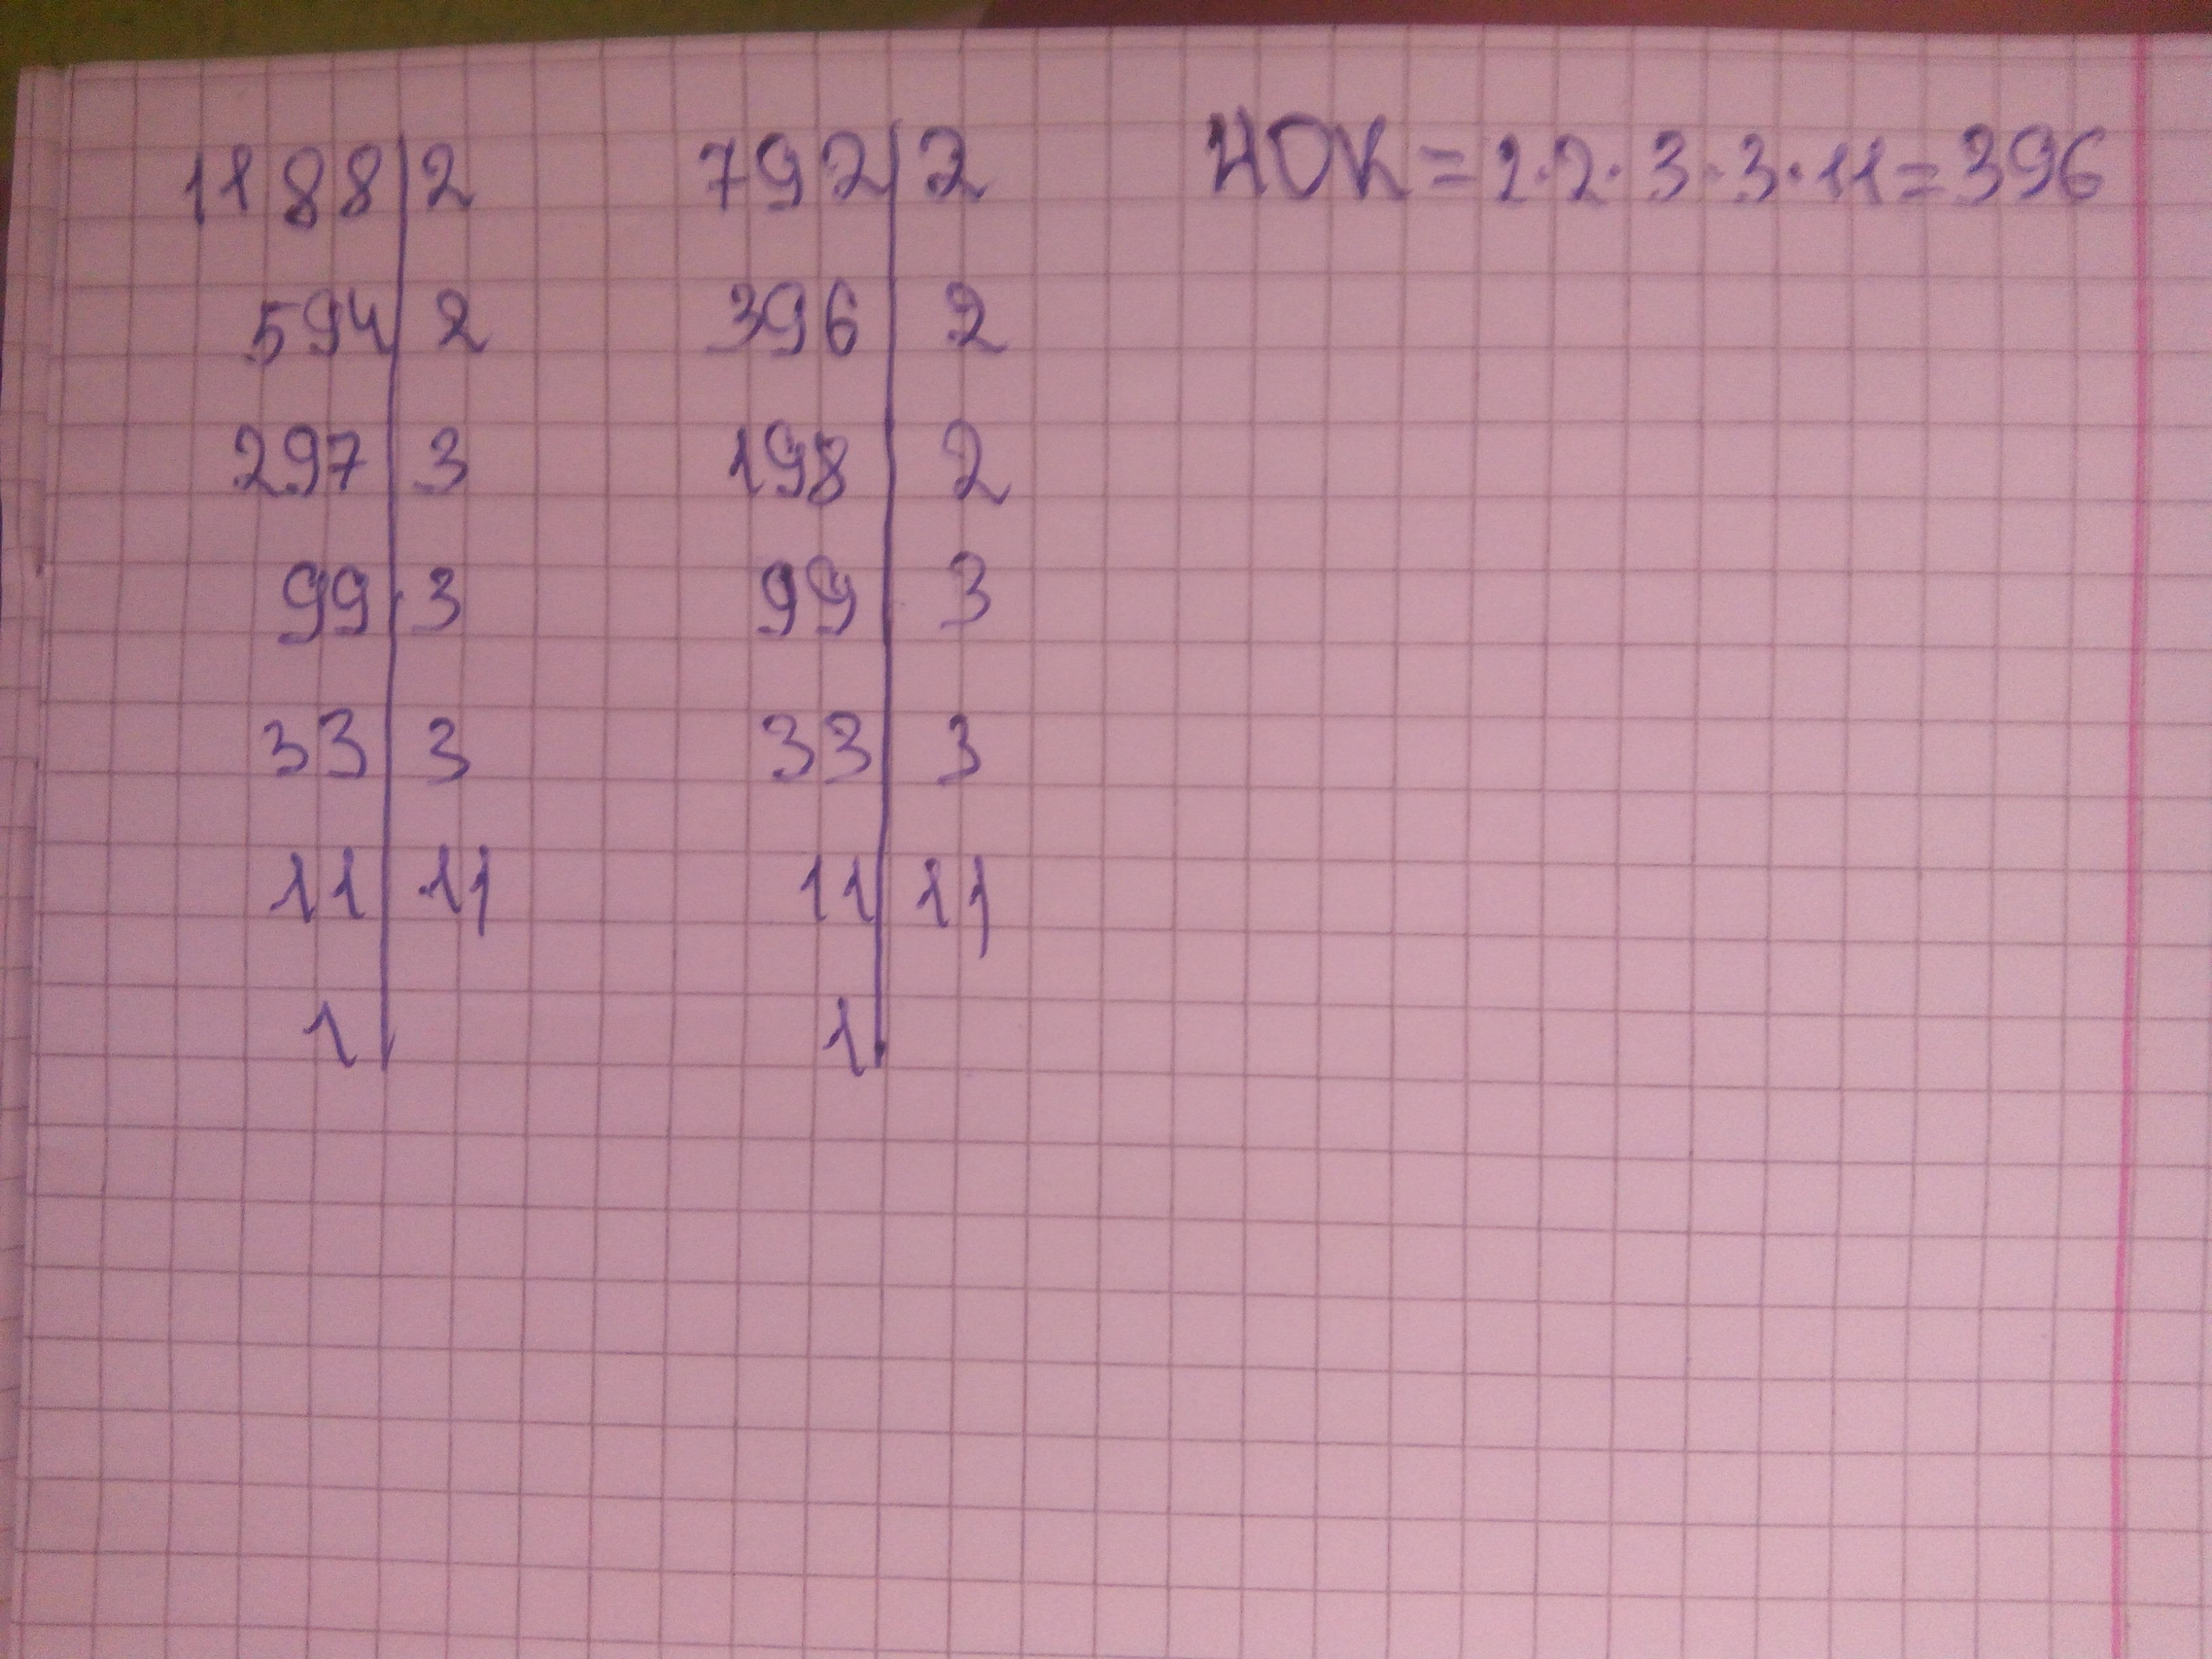 1188|2 792|2 НОК=2·2·3·3·11=396
594|2 396|2
297|3 198|2
99|3 99|3
33|3 33|3
11|11 11|11
1| 1|